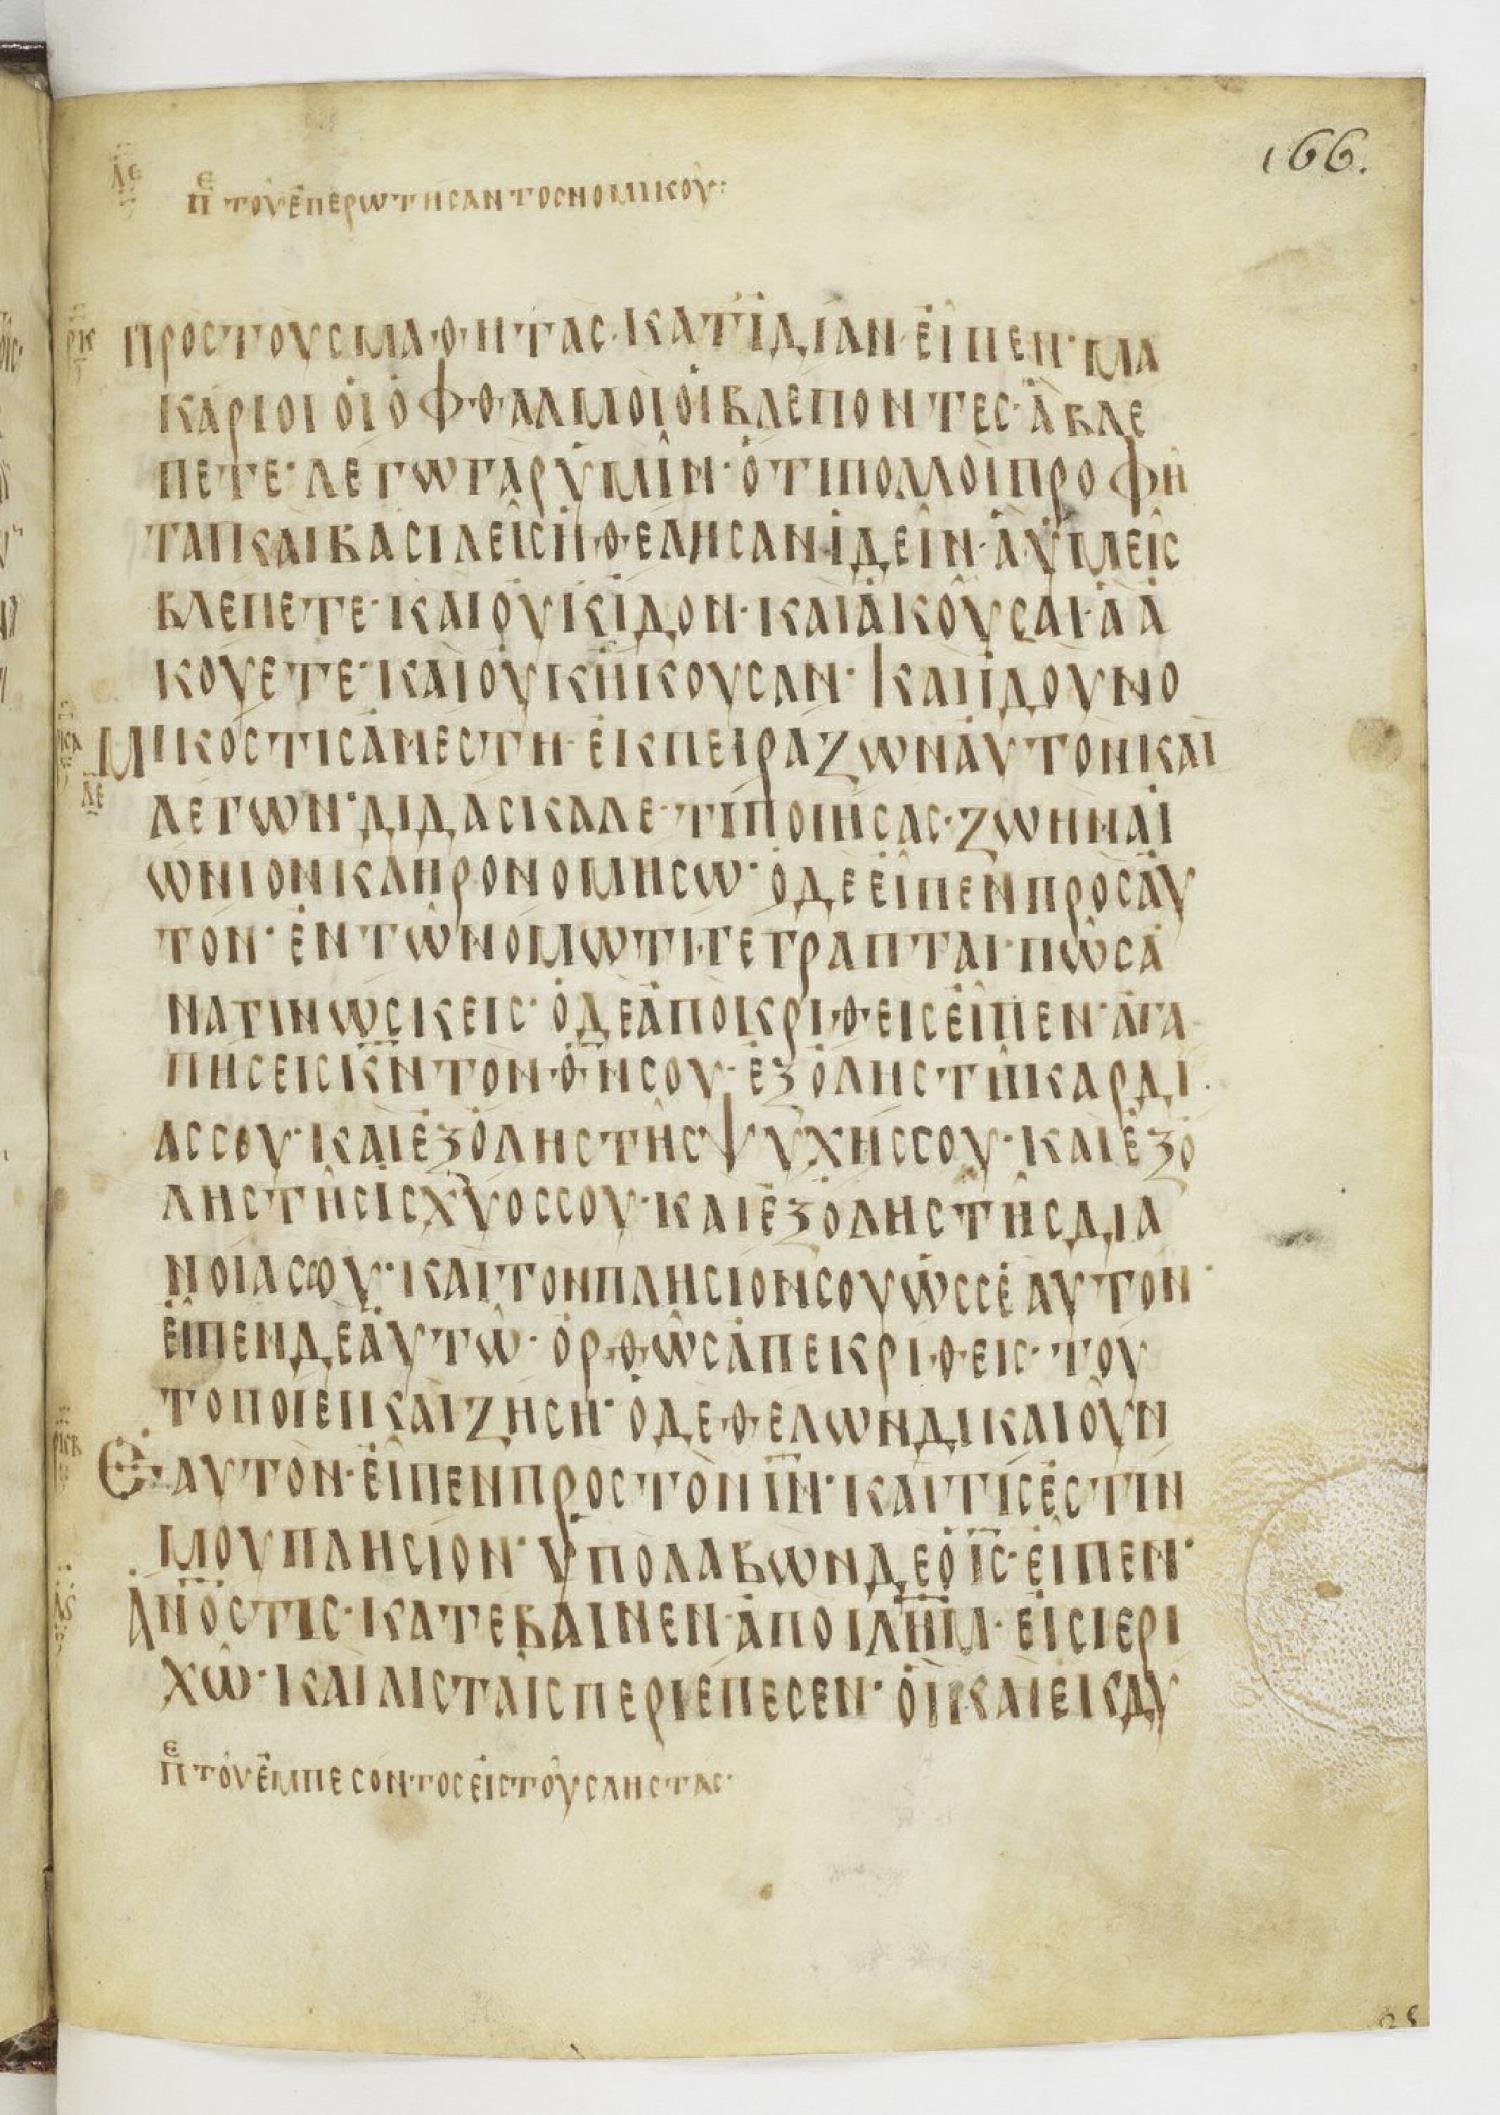 166.
ΛΕ
ΠΕ ΤΟΥ ἘΠΕΡΩΤΗСΑΝΤΟС ΝΟΜΙΚΟΥ:
ΡΚ
ΠΡΟСΤΟΥСΜΑΘΗΤΑС·ΚΑΤΪΔΙΑΝ·ΕΙΠΕΝ·ΜΑ
ΚΑΡΙΟΙΟΙΟΦΘΑΛΜΟΙΟΙΒΛΕΠΟΝΤΕС·ΑΒΛΕ
ΠΕΤΕ·ΛΕΓΩΓΑΡΥΜΙΝ·ΟΤΙΠΟΛΛΟΙΠΡΟΦΗ
ΤΑΙΚΑΙΒΑСΙΛΕΙСΗΘΕΛΗСΑΝΙΔΕΙΝ·ΑΥΜΕΙС
ΒΛΕΠΕΤΕ·ΚΑΙΟΥΚΙΔΟΝ·ΚΑΙΑΚΟΥСΑΙ·ΑΑ
ΚΟΥΕΤΕ·ΚΑΙΟΥΚΗΚΟΥСΑΝ·ΚΑΙΙΔΟΥΝΟ
ΡΚΑ
ΜΙΚΟСΤΙСΑΝΕСΤΗ·ΕΚΠΕΙΡΑΖΩΝΑΥΤΟΝΚΑΙ
ΛΕ
ΛΕΓΩΝ·ΔΙΔΑСΚΑΛΕ·ΤΙΠΟΙΗСΑС·ΖΩΗΝΑΙ
ΩΝΙΟΝΚΛΗΡΟΝΟΜΗСΩ·ΟΔΕΕΙΠΕΝΠΡΟСΑΥ
ΤΟΝ·ΕΝΤΩΝΟΜΩΤΙΓΕΓΡΑΠΤΑΙ·ΠΩСΑ
ΝΑΓΙΝΩСΚΕΙС·ΟΔΕΑΠΟΚΡΙΘΕΙСΕΙΠΕΝ·ΑΓΑ
ΠΗСΕΙСΚ̅Ν̅ΤΟΝΘ̅Ν̅СΟΥ·ΕΞΟΛΗСΤΗΚΑΡΔΙ
ΑССΟΥ·ΚΑΙΕΞΟΛΗСΤΗСΨΥΧΗССΟΥ·ΚΑΙΕΞΟ
ΛΗСΤΗСΙСΧΥΟССΟΥ·ΚΑΙΕΞΟΛΗСΤΗСΔΙΑ
ΝΟΙΑСΟΥ·ΚΑΙΤΟΝΠΛΗСΙΟΝСΟΥΩССΕΑΥΤΟΝ·
ΕΙΠΕΝΔΕΑΥΤΩ·ΟΡΘΩСΑΠΕΚΡΙΘΕΙС·ΤΟΥ
ΤΟΠΟΙΕΙΚΑΙΖΗСΗ·ΟΔΕΘΕΛΩΝΔΙΚΑΙΟΥΝ
ΡΚΒ
ΕΑΥΤΟΝ·ΕΙΠΕΝΠΡΟСΤΟΝΙ̅Ν̅·ΚΑΙΤΙСΕСΤΙΝ
ΜΟΥΠΛΗСΙΟΝ·ΥΠΟΛΑΒΩΝΔΕΟΙ̅С̅·ΕΙΠΕΝ·
ΛϚ
Α̅Ν̅Ο̅С̅ΤΙС·ΚΑΤΕΒΑΙΝΕΝ·ΑΠΟΙ̅Λ̅Η̅Μ̅·ΕΙСΙΕΡΙ
ΧΩ·ΚΑΙΛΙСΤΑΙСΠΕΡΙΕΠΕСΕΝ·ΟΙΚΑΙΕΚΔΥ
ΠΕ ΤΟΥΕΜΠΕСΟΝΤΟСΕΙСΤΟΥСΛΗСΤΑС·